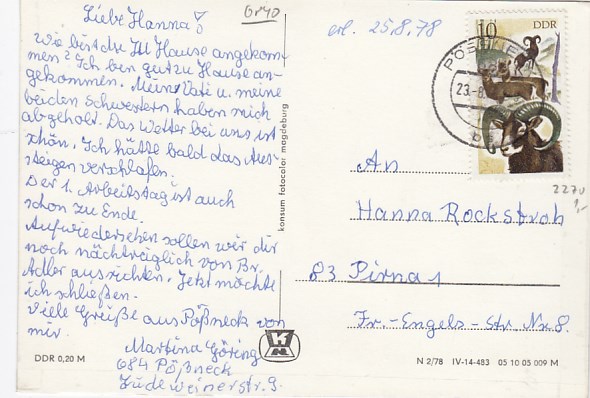 Liebe Hanna!
Wie bist du zu Hause angekom-
men? Ich bin gut zu Hause an-
gekommen. Mein Vati u. meine
beiden Schwestern haben mich
abgeholt. Das Wetter bei uns ist
schön. Ich hätte bald das Aus-
steigen verschlafen.
Der 1. Arbeitstag ist auch
schon zu Ende.
Aufwiedersehen sollen wir dir
noch nachträglich von Br.
Adler ausrichten. Jetzt möchte
ich schließen.
Viele Grüße aus Pößneck von
mir.
Martina Göring
684 Pößneck
Jüdeweinerstr. 9
DDR 0,20 M
Gr40
konsum fotocolor magdeburg
erh. 25.8.78
10 DDR
23.-8
An
2270
1,-
Hanna Rockstroh
83 Pirna 1
Fr.-Engels-Str. Nr. 8.
N 2/78 IV-14-483 05 10 05 009 M